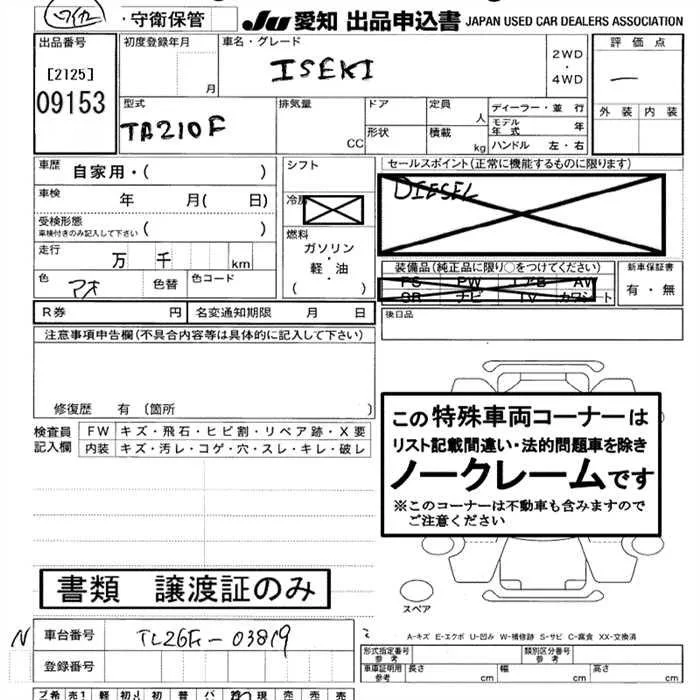 ワイカ ・守衛保管 Ju 愛知 出品申込書 JAPAN USED CAR DEALERS ASSOCIATION
出品番号
[2125]
09153
初度登録年月
月
車名・グレード
ISEKI
2WD
・
4WD
評価点
ー
外装 内装
型式
TA210F
排気量
CC
ドア
形状
定員
人
積載
kg
ディーラー・並行
モデル年式 年
ハンドル 左・右
車歴 自家用・( )
車検 年 月( 日)
受検形態
車検付きのみ記入して下さい ( )
走行 万 千 km
色 アオ 色替 色コード
シフト
冷房
燃料
ガソリン
・
軽・油
( )
セールスポイント(正常に機能するものに限ります)
DIESEL
装備品(純正品に限り○をつけてください)
PS PW エアB AW
SR ナビ TV カワシート
新車保証書
有・無
R券 円 名変通知期限 月 日
後日品
注意事項申告欄(不具合内容等は具体的に記入して下さい)
修復歴 有 〔箇所 〕
検査員
記入欄
FW キズ・飛石・ヒビ割・リペア跡・X要
内装 キズ・汚レ・コゲ・穴・スレ・キレ・破レ
この特殊車両コーナーは
リスト記載間違い・法的問題車を除き
ノークレームです
※このコーナーは不動車も含みますので
ご注意ください
スペア
書類 譲渡証のみ
N 車台番号 TL26F-03819
登録番号
A-キズ E-エクボ U-凹み W-補修跡 S-サビ C-腐食 XX-交換済
形式指定番号
参考
類別区分番号
参考
車庫証明用
参考
長さ cm 幅 cm 高さ cm